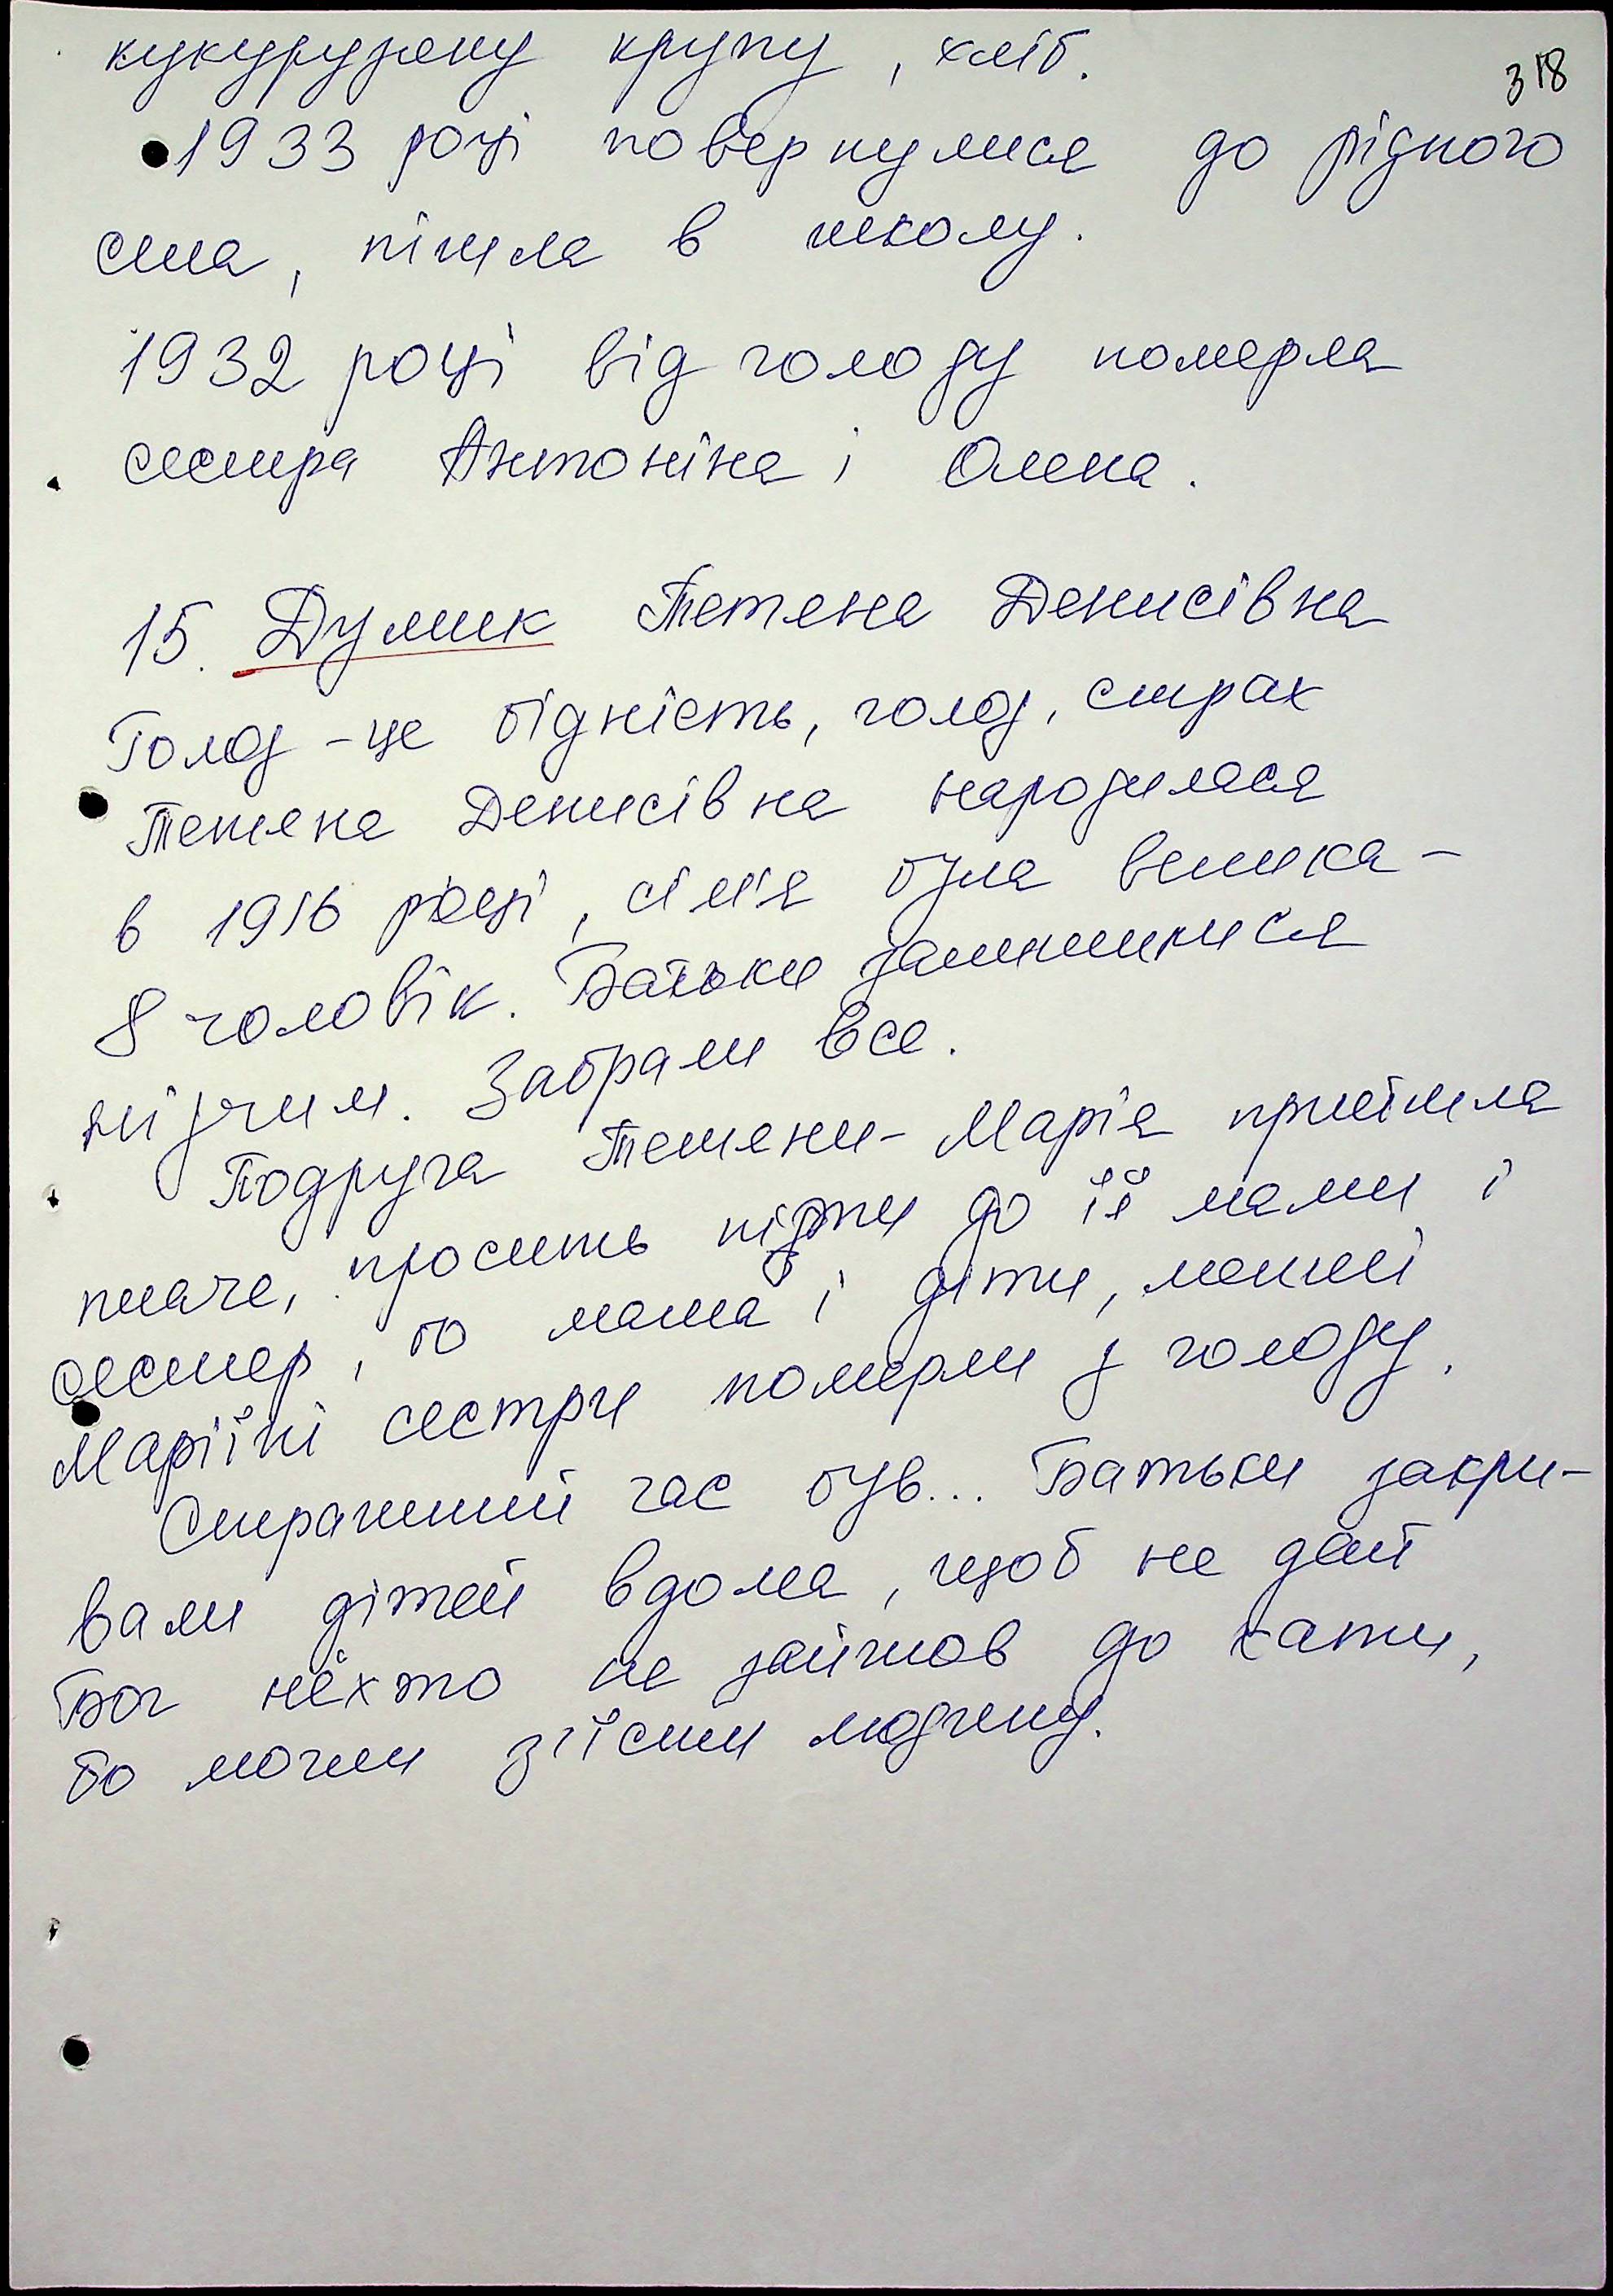 318
кукурузяну крупу, хліб.
1933 році повернулися до рідного
села, пішла в школу.
1932 році від голоду померла
сестра Антоніна і Олена.
15. Думик Тетяна Денисівна
Голод - це бідність, голод, страх
Тетяна Денисівна народилася
в 1916 році, сім'я була велика -
8 чоловік. Батьки залишилися
ні з чим. Забрали все.
Подруга Тетяни - Марія прийшла
плаче, просить піти до її мами і
сестер, бо мама і діти, менші
Маріїні сестри померли з голоду.
Страшний час був... Батьки закри-
вали дітей вдома, щоб не дай
Бог ніхто не зайшов до хати,
бо могли з'їсти людину.